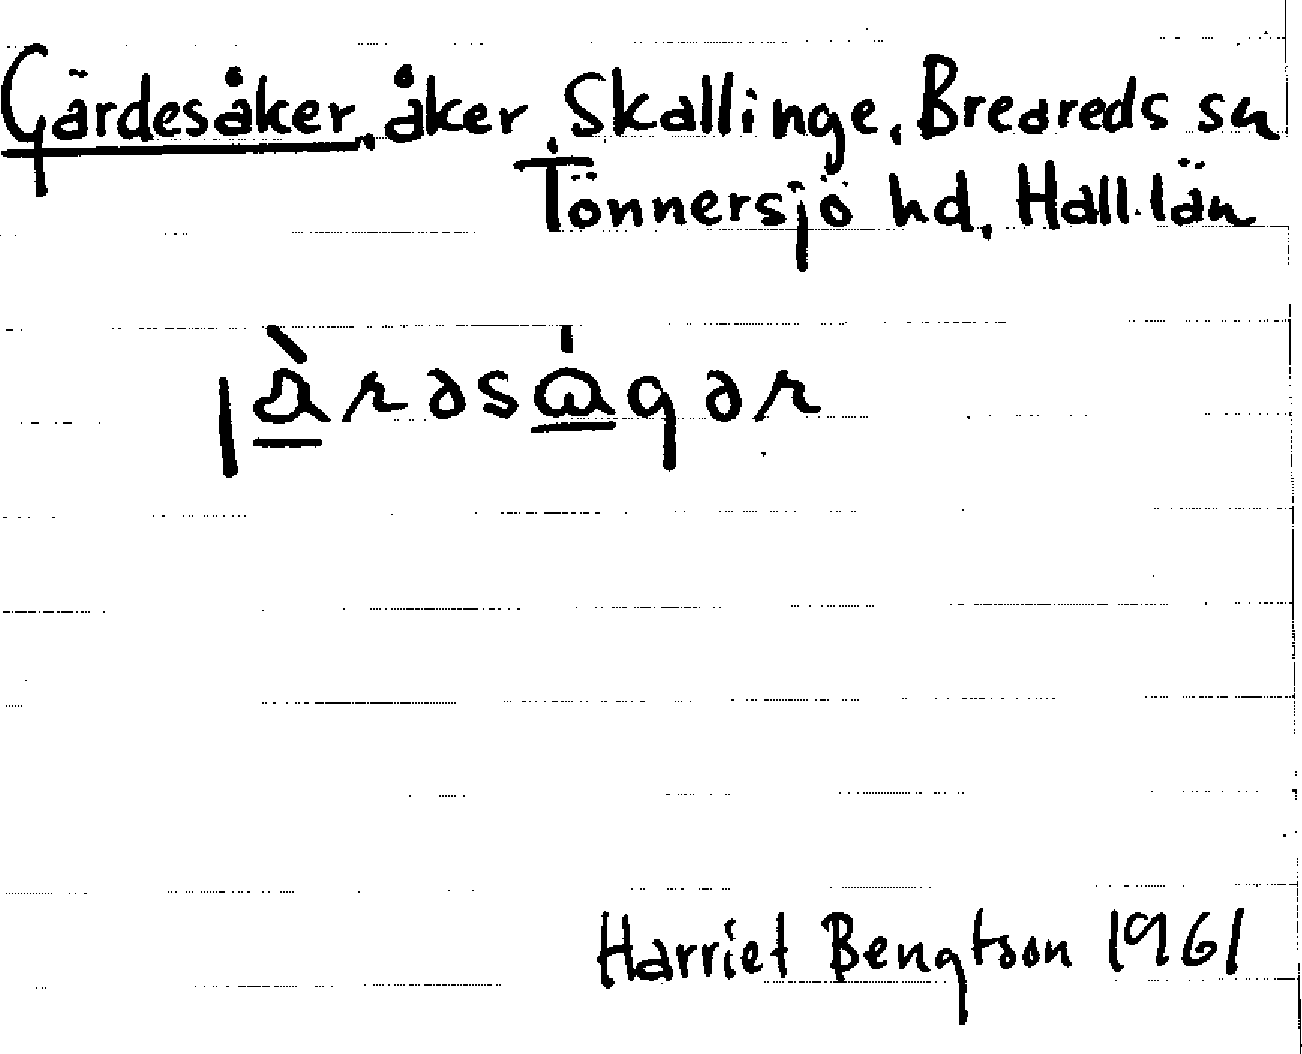 Gärdesåker, åker, Skallinge, Breareds sn
Tönnersjö hd, Hall. län
jä̀rəsågər
Harriet Bengtson 1961